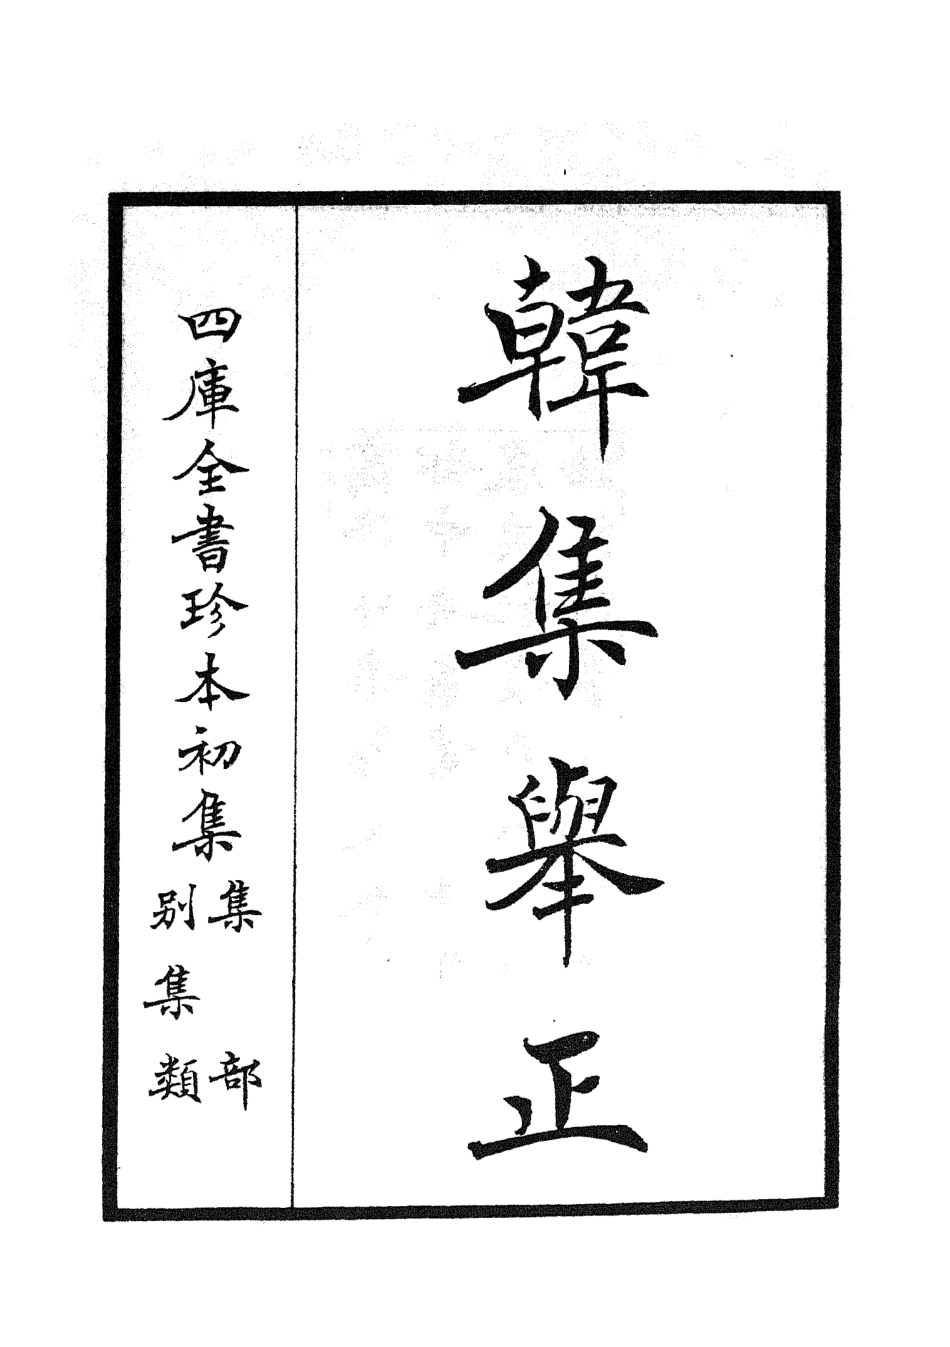 韓集舉正
四庫全書珍本初集
集部
別集類